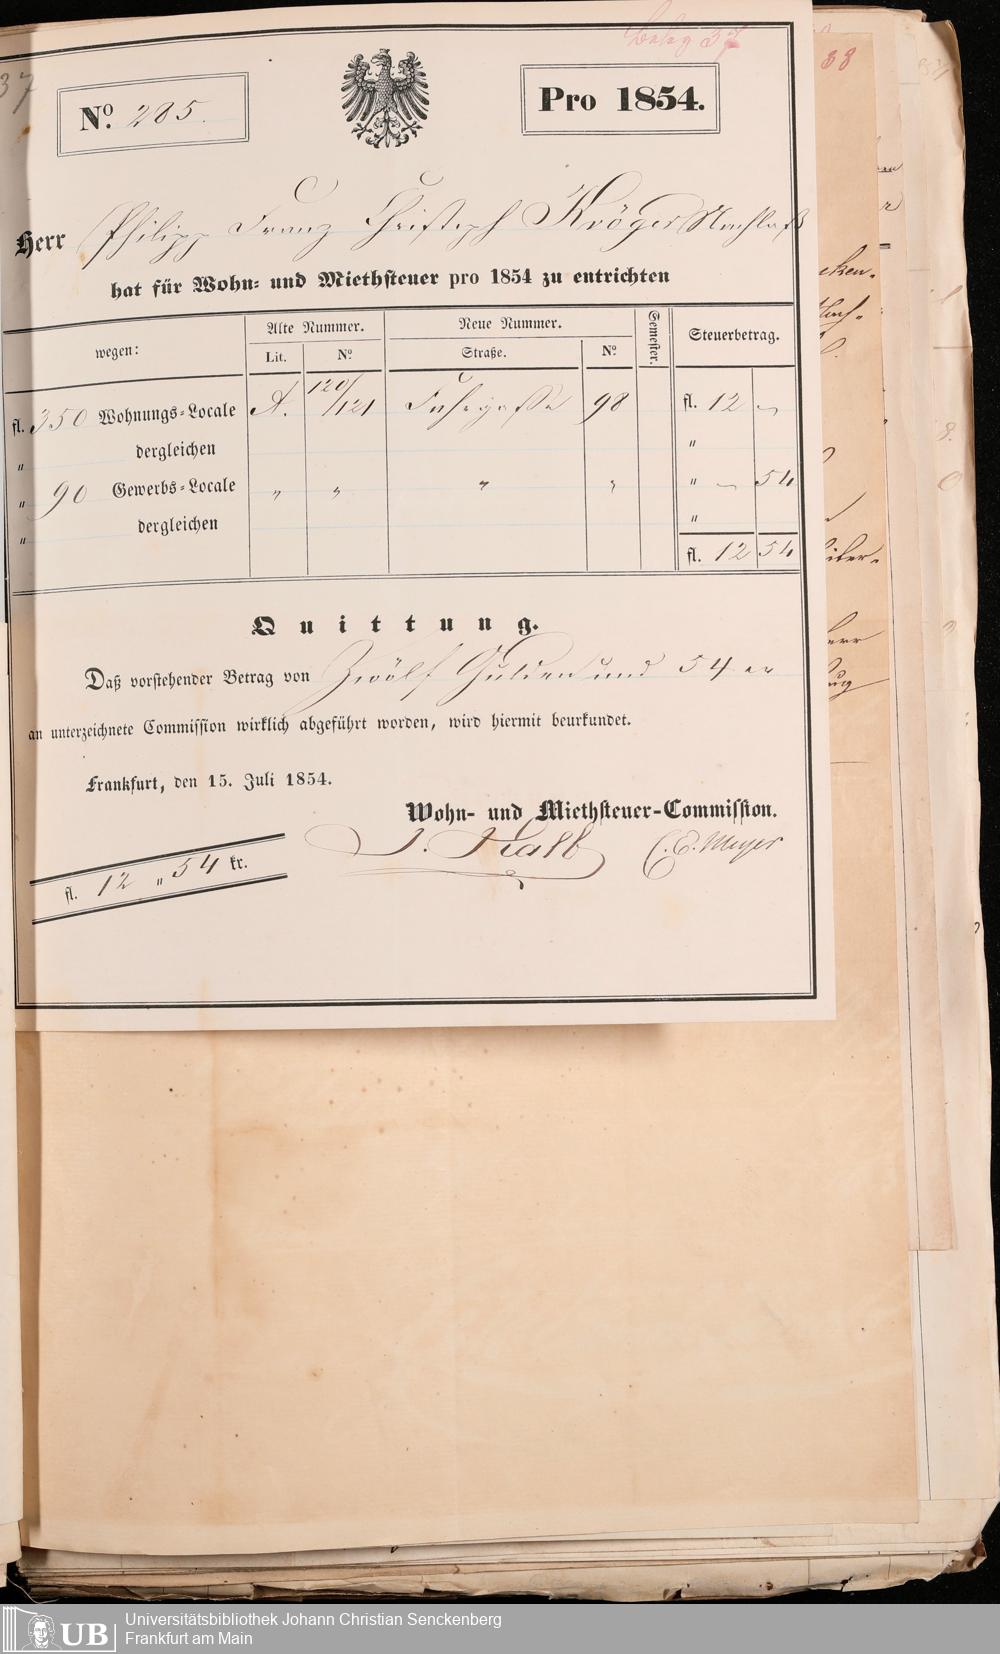 Beleg 37
37
38
No. 285.
Pro 1854.
Herr Philipp Franz Christoph Kröger Nachlaß
hat für Wohn- und Miethsteuer pro 1854 zu entrichten
wegen: Alte Nummer. Neue Nummer. Semester. Steuerbetrag.
Lit. No. Straße. No.
fl. 350 Wohnungs-Locale A. 120/121 Fahrgasse 98 fl. 12 —
„ dergleichen „
„ 90 Gewerbs-Locale „ „ „ „ „ — 54
„ dergleichen „
fl. 12 54
Quittung.
Daß vorstehender Betrag von Zwölf Gulden und 54 xr
an unterzeichnete Commission wirklich abgeführt worden, wird hiermit beurkundet.
Frankfurt, den 15. Juli 1854.
Wohn- und Miethsteuer-Commission.
J. Kalb C. E. Meyer
fl. 12 „ 54 kr.
UB
Universitätsbibliothek Johann Christian Senckenberg
Frankfurt am Main